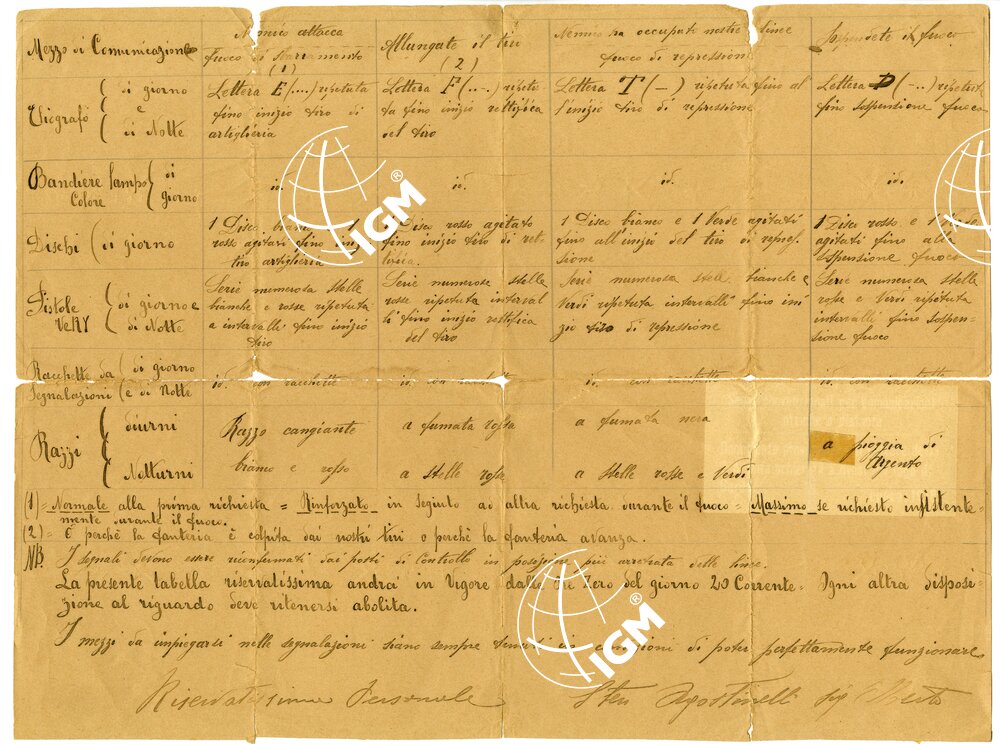 Mezzo di Comunicazione
Nemico attacca
fuoco di sbarramento
(1)
Allungate il tiro
(2)
Nemico ha occupato nostre linee
fuoco di repressione
Sospendete il fuoco
di giorno
e
di Notte
Lettera E (....) ripetuta
fino inizio tiro di
artiglieria
Lettera F (..-.) ripetu
ta fino inizio rettifica
del tiro
Lettera T (—) ripetuta fino al
l'inizio tiro di repressione
Lettera D (-..) ripetuta
fino sospensione fuoco
Bandiere lampo
Colore
di
giorno
id.
id.
id.
id.
Dischi
di giorno
1 Disco
rosso agitati fino
tiro artiglieria
1 Disco rosso agitato
fino inizio tiro di ret-
1 Disco bianco e 1 Verde agitati
fino all'inizio del tiro di repres-
sione
1 Disco rosso e 1
agitati fino alla
sospensione fuoco
Pistole
VeRY
di giorno e
di Notte
Serie numerosa stelle
bianche e rosse ripetuta
a intervalli fino inizio
tiro
Serie numerose stelle
rosse ripetuta interval
li fino inizio rettifica
del tiro
Serie numerosa stelle bianche e
Verdi ripetuta intervalli fino ini
zio tiro di repressione
Serie numerosa stelle
rosse e Verdi ripetuta
intervalli fino sospen-
sione fuoco
Racchette da
Segnalazioni
di giorno
e di Notte
id. con racchette
id. con racchette
id. con racchette
id. con racchette
Razzi
diurni
Notturni
Razzo cangiante
bianco e rosso
a fumata rossa
a stelle rosse
a fumata nera
a stelle rosse e Verdi
a pioggia di
Argento
(1) = Normale alla prima richiesta = Rinforzato in seguito ad altra richiesta durante il fuoco = Massimo se richiesto insistente-
mente durante il fuoco.
(2) = È perchè la fanteria è colpita dai nostri tiri o perchè la fanteria avanza.
NB. I segnali devono essere riconfermati dai posti di Controllo in posizione più arretrata delle linee.
La presente tabella riservatissima andrà in Vigore dalle ore Zero del giorno 20 Corrente = Ogni altra disposi-
zione al riguardo deve ritenersi abolita.
I mezzi da impiegarsi nelle segnalazioni siano sempre tenuti in condizioni di poter perfettamente funzionare
Riservatissima Personale
Sten Agostinelli Sig
IGM®
IGM®